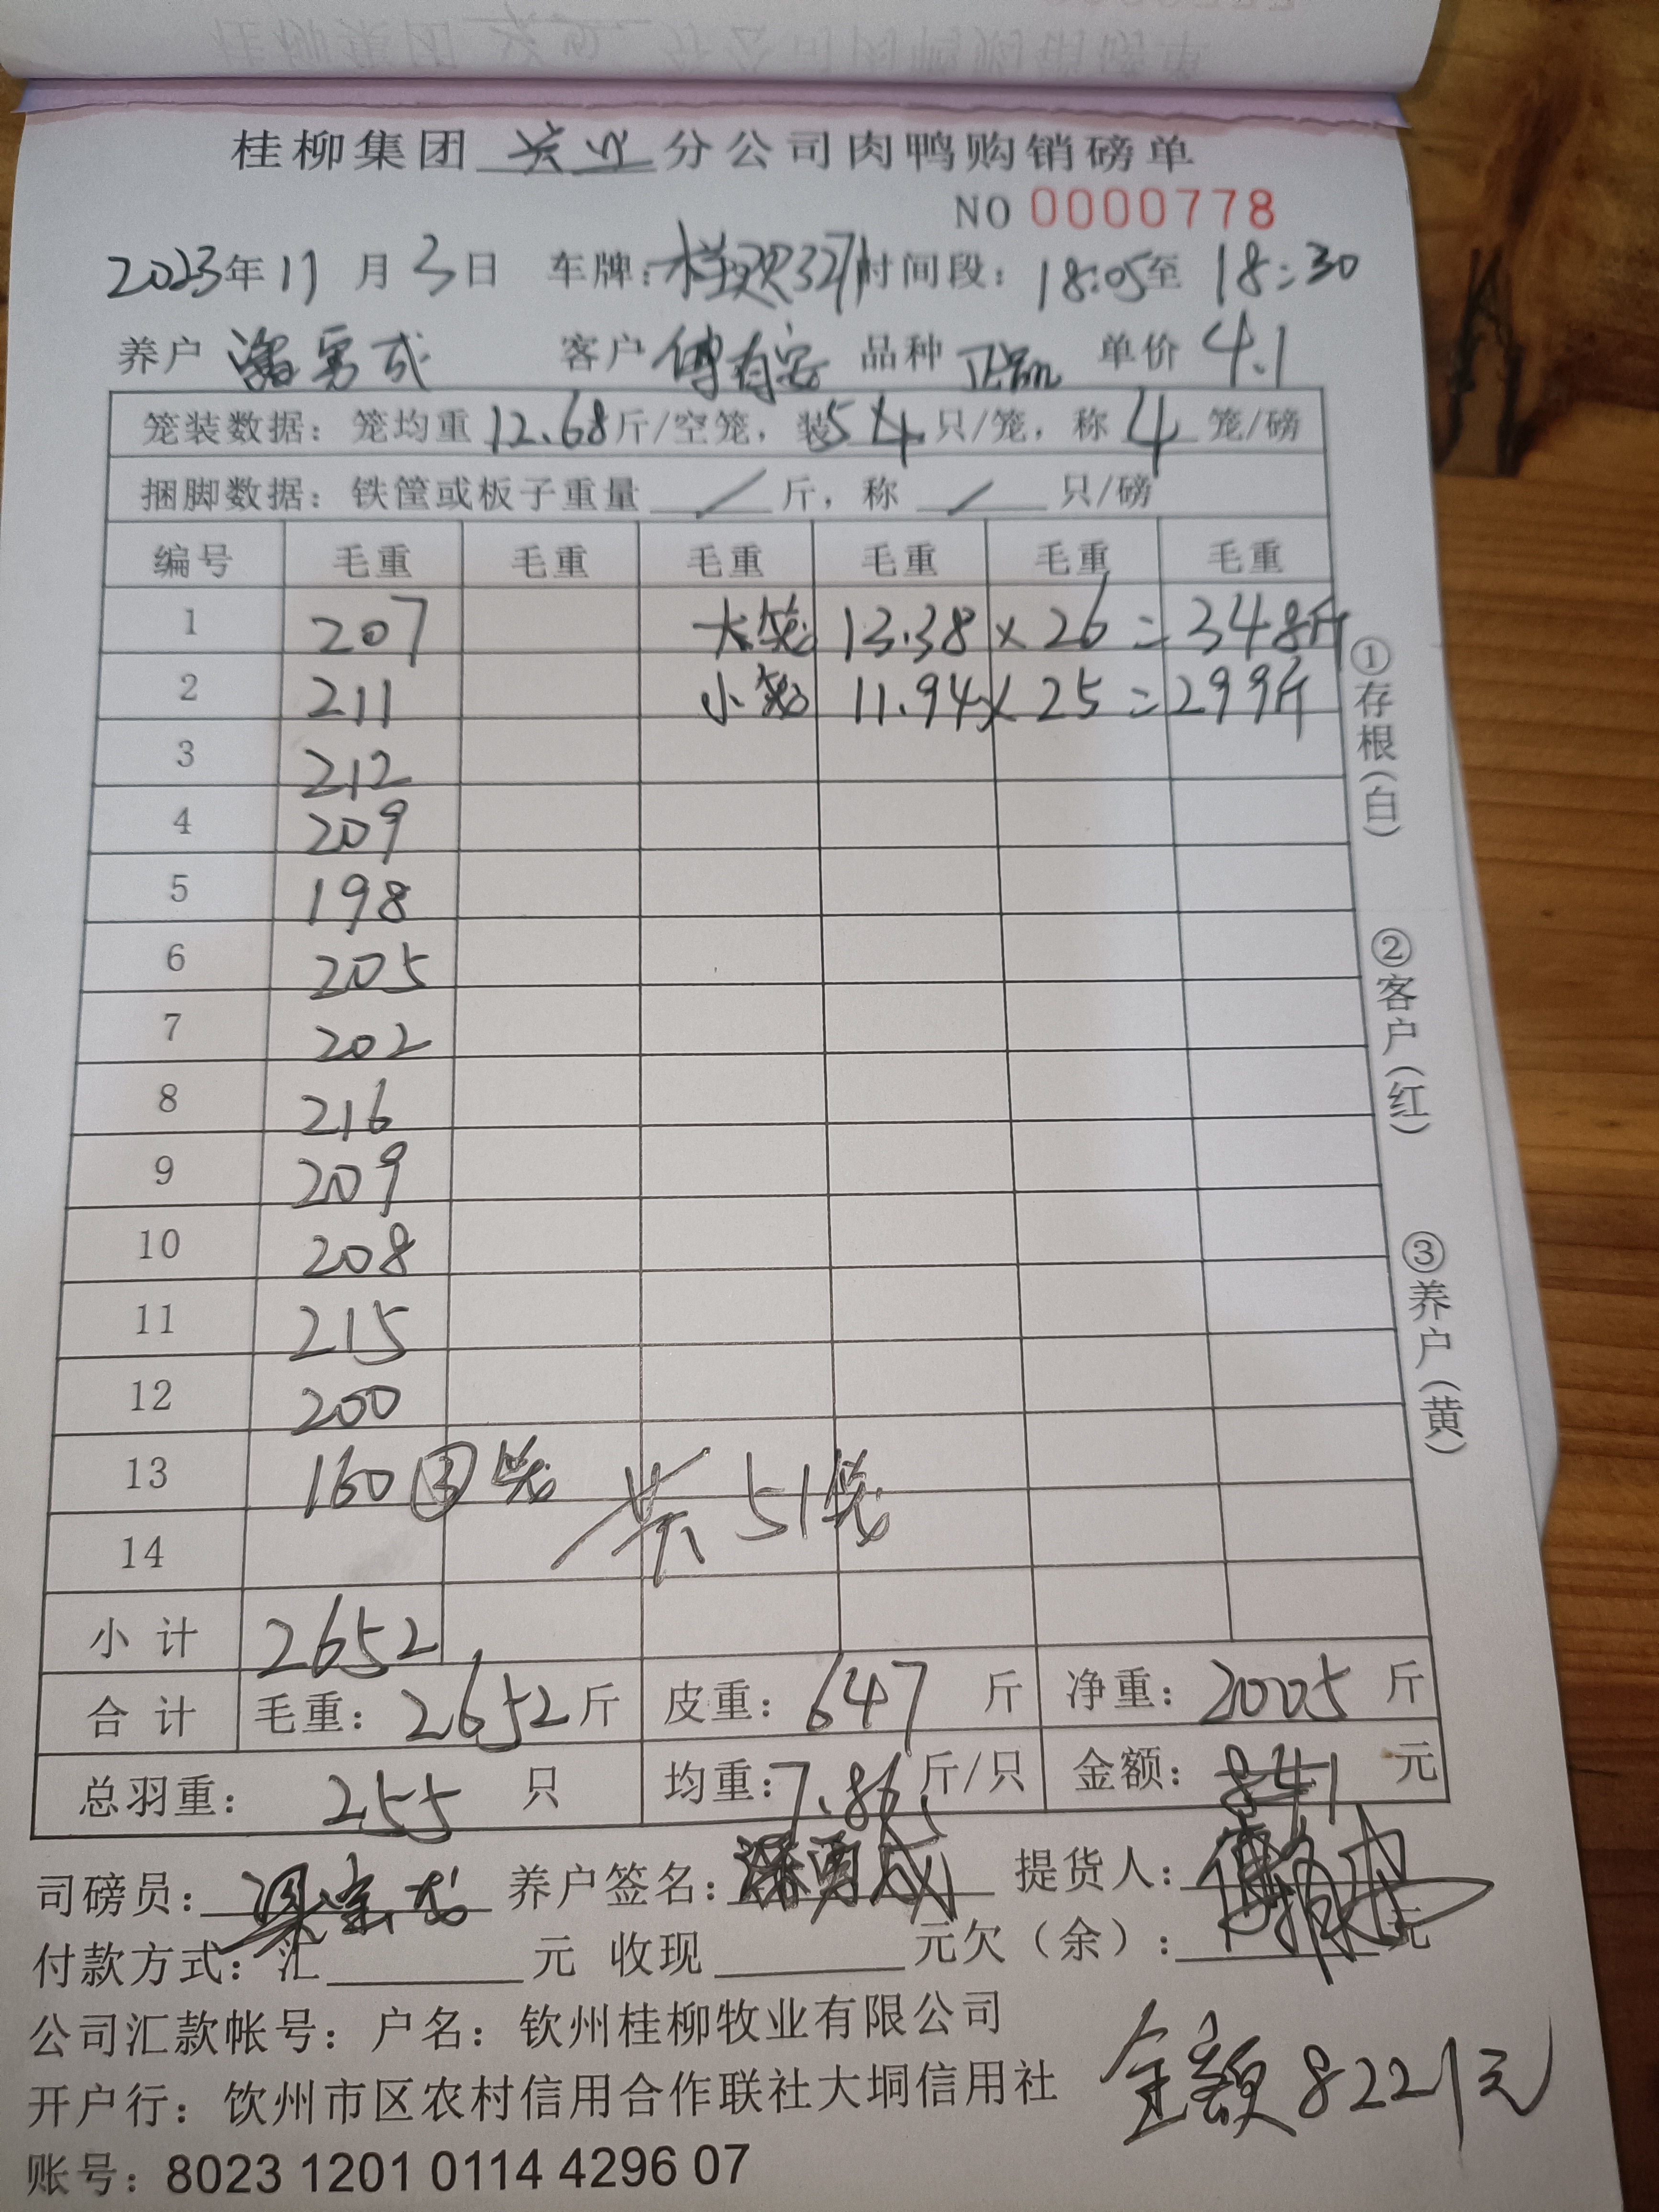 桂柳集团 兴业 分公司肉鸭购销磅单
NO 0000778
2023年11月3日 车牌: 327 时间段: 18:05至18:30
养户 潘勇成 客户 傅有安 品种 正品 单价 4.1
笼装数据: 笼均重 12.68斤/空笼, 装5×4只/笼, 称4笼/磅
捆脚数据: 铁筐或板子重量 / 斤, 称 / 只/磅
编号 毛重 毛重 毛重 毛重 毛重 毛重
1 207 大笼 13.38 × 26 = 348斤
2 211 小笼 11.94 × 25 = 299斤
3 212
4 209
5 198
6 205
7 202
8 216
9 209
10 208
11 215
12 200
13 160 ③笼 共51笼
14
小计 2652
合计 毛重: 2652斤 皮重: 647斤 净重: 2005斤
总羽重: 255只 均重: 7.86斤/只 金额: 841元
司磅员: 养户签名: 潘勇成 提货人:
付款方式: 汇 元 收现 元欠(余): 元
公司汇款帐号: 户名: 钦州桂柳牧业有限公司
开户行: 饮州市区农村信用合作联社大垌信用社
金额8221元
账号: 8023 1201 0114 4296 07
①存根(白)
②客户(红)
③养户(黄)